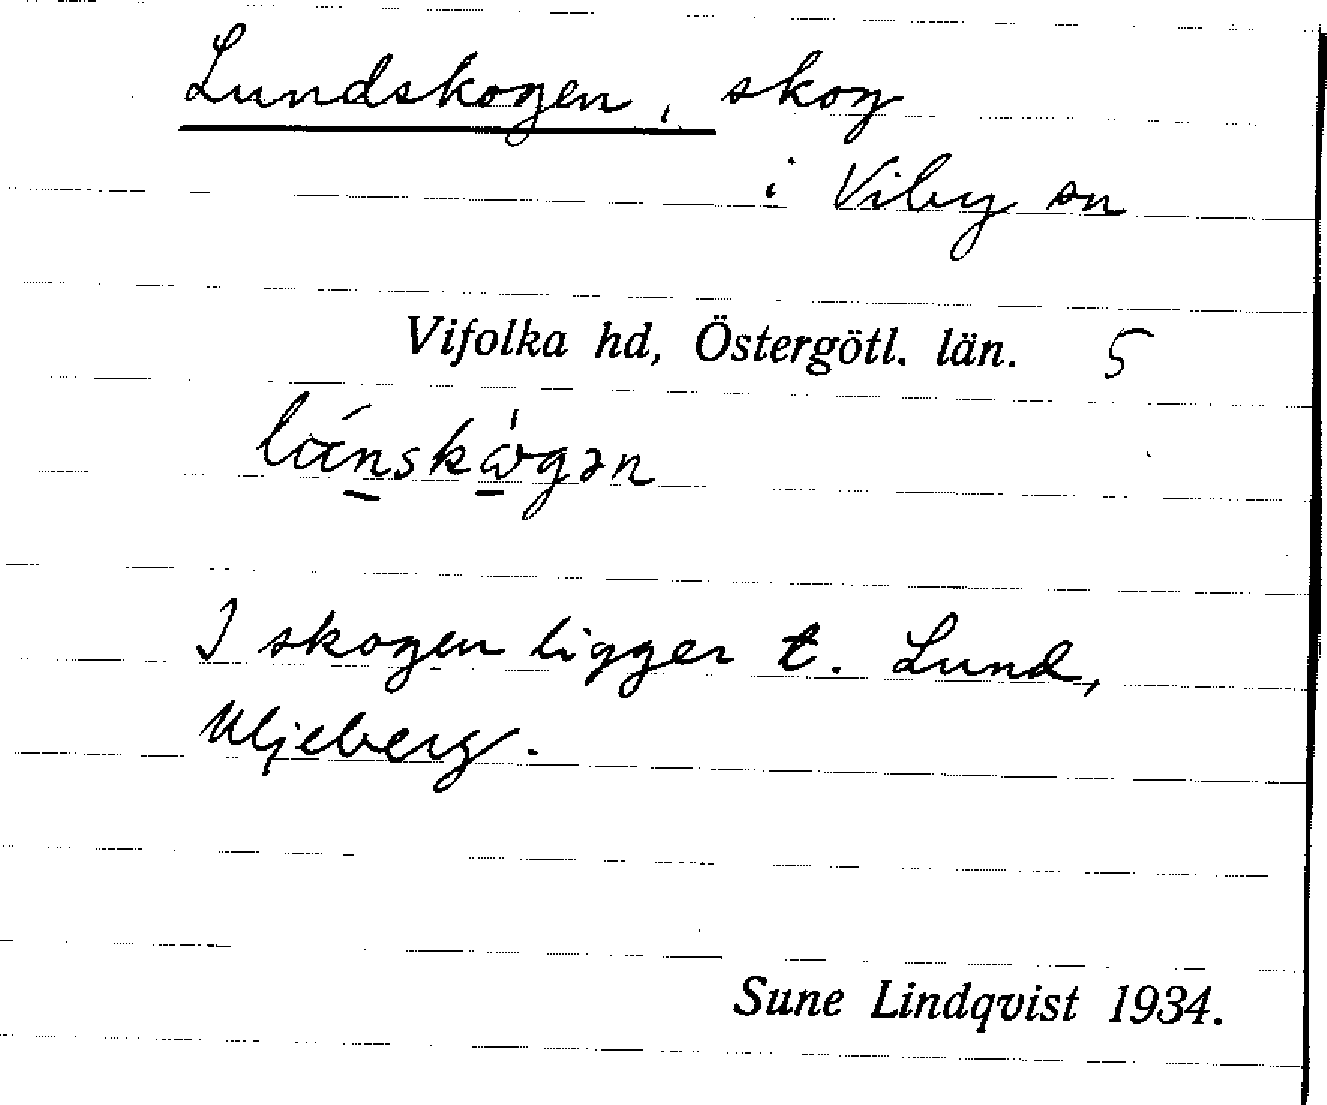 Lundskogen, skog
i Viby sn
Vifolka hd, Östergötl. län. 5
I skogen ligger t. Lund,
Uljeberg.
Sune Lindqvist 1934.